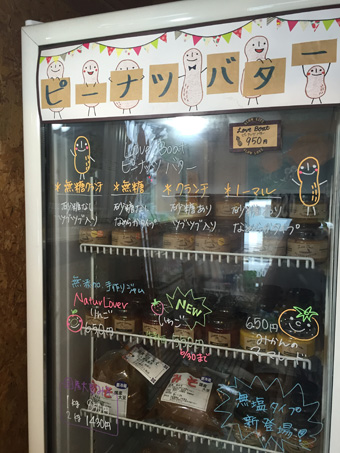 ピーナツバター
Love Boat
950円
Love Boat
ピーナツバター
*無糖クランチ *無糖 *クランチ *ノーマル
砂糖なし 砂糖なし 砂糖あり 砂糖あり
ツブツブ入り なめらか ツブツブ入り
無添加 手作りジャム
NaturLover
りんご
650円
NEW
いちご
5/30まで
650円
みかんの
マーマレード
1kg
2kg 1430円
無塩タイプ
新登場